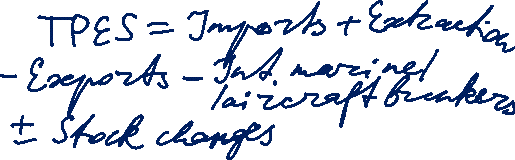 TPES = Imports + Extraction
- Exports - Int. marine/
/aircraft bunkers
± Stock changes